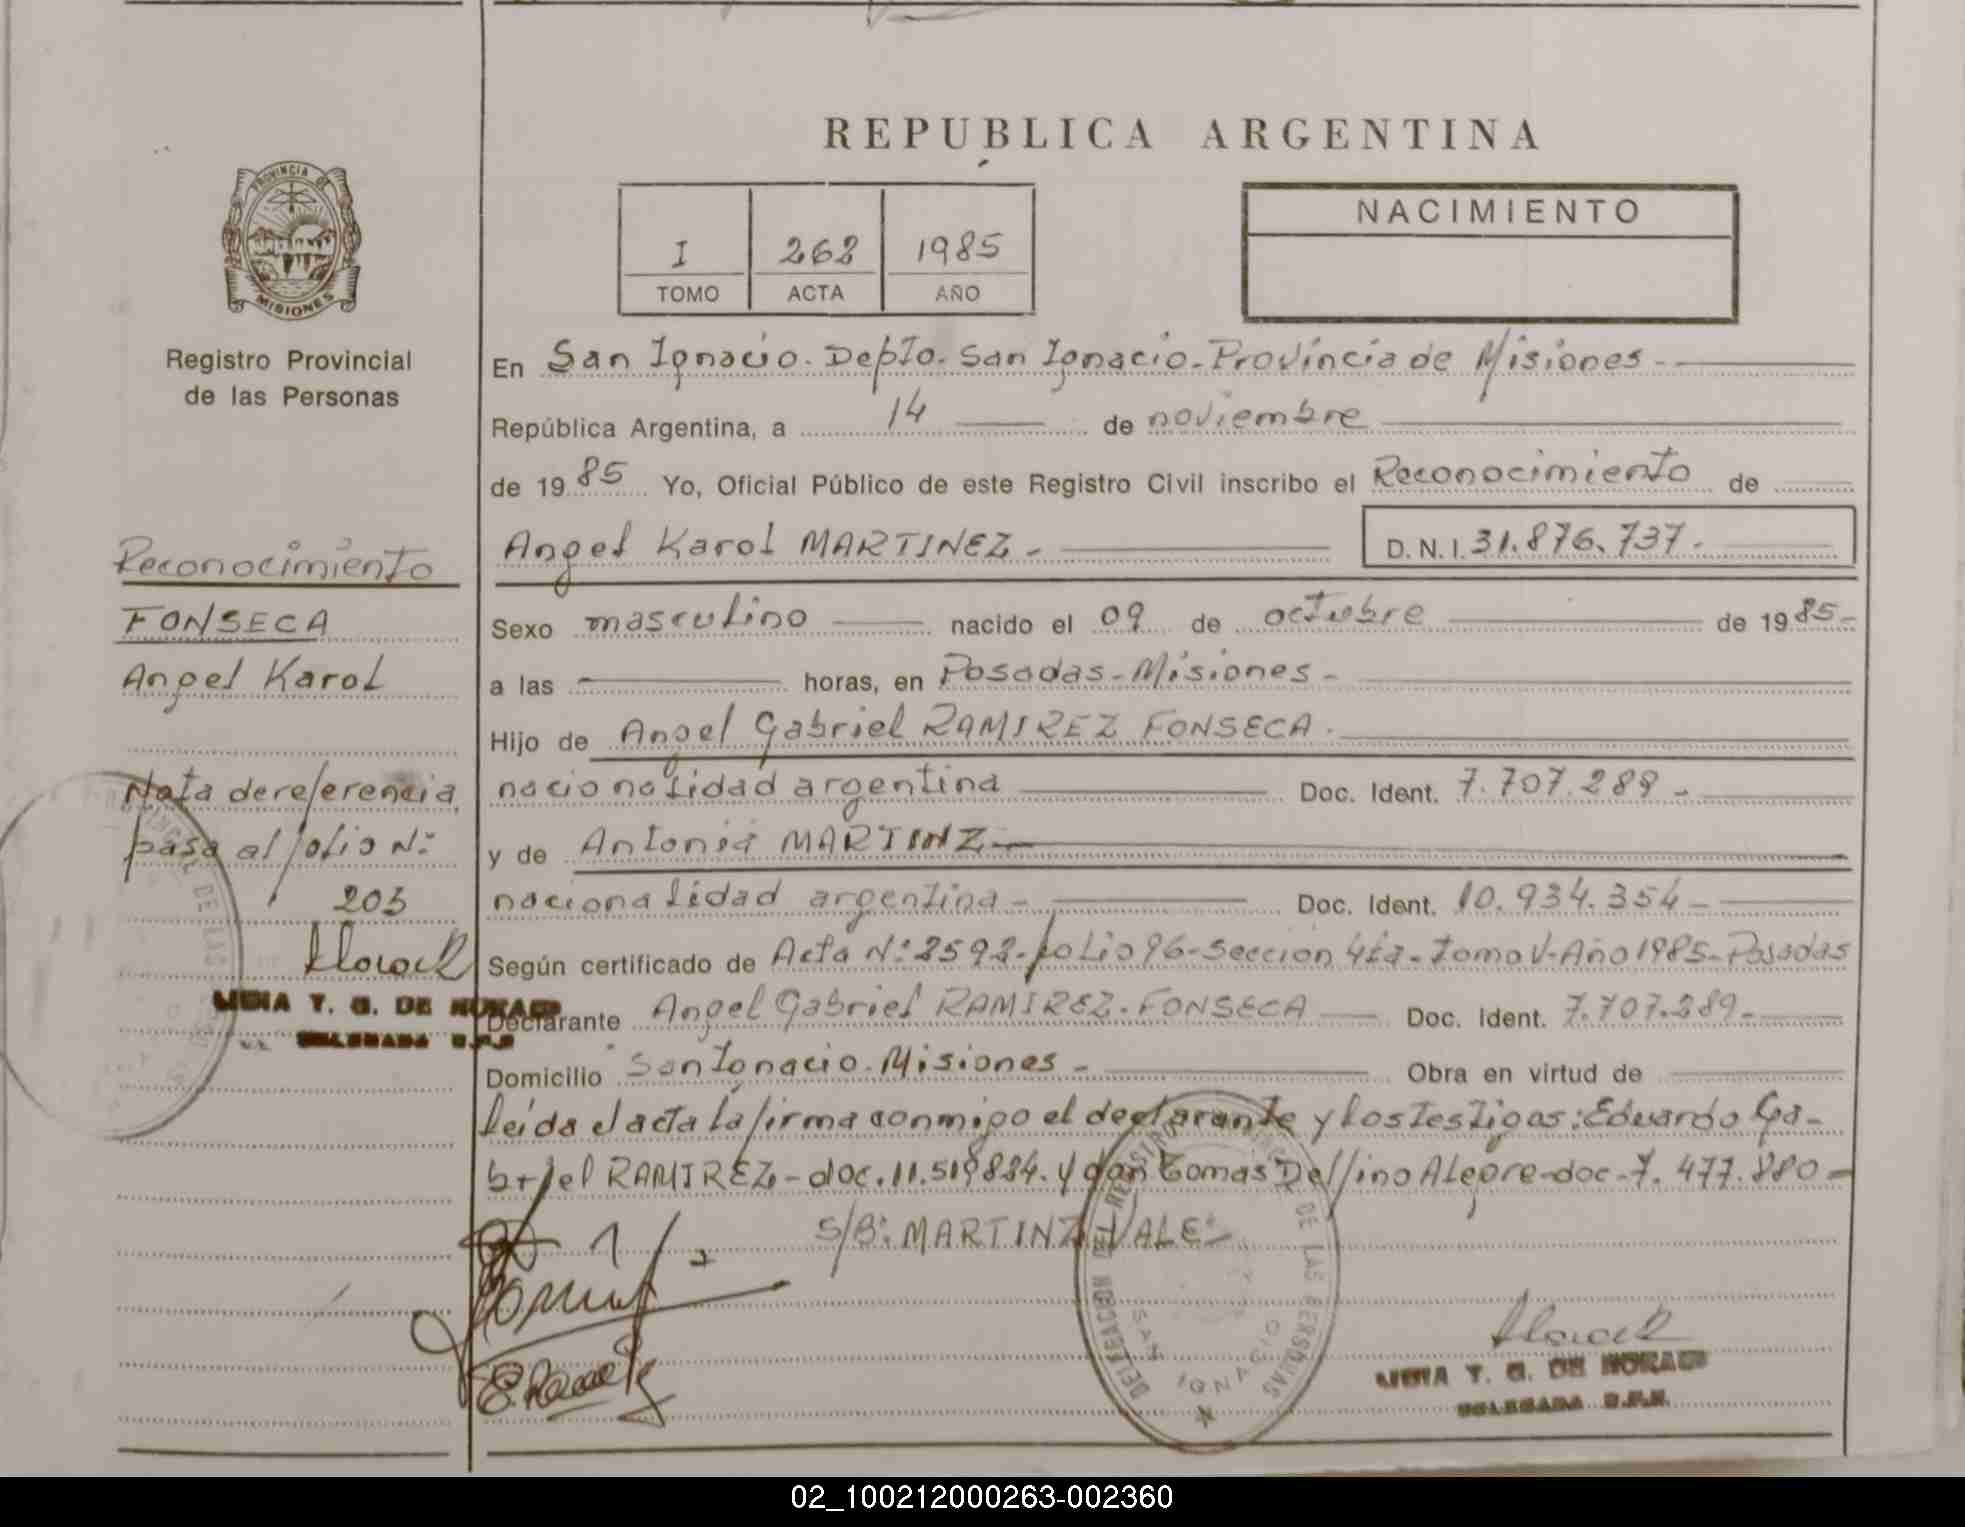 REPUBLICA ARGENTINA
PROVINCIA DE
MISIONES
Registro Provincial
de las Personas
I 262 1985
TOMO ACTA AÑO
NACIMIENTO
En San Ignacio. Depto. San Ignacio. Provincia de Misiones.
República Argentina, a 14 de noviembre
de 1985 Yo, Oficial Público de este Registro Civil inscribo el Reconocimiento de
Angel Karol MARTINEZ. D.N.I. 31.876.737.
Sexo masculino nacido el 09 de octubre de 1985-
a las horas, en Posadas-Misiones-
Hijo de Angel Gabriel RAMIREZ FONSECA.
nacionalidad argentina Doc. Ident. 7.707.289-
y de Antonia MARTINZ
nacionalidad argentina- Doc. Ident. 10.934.354-
Según certificado de Acta Nº: 2592-folio 96-Sección 4ta-Tomo V-Año 1985-Posadas
Declarante Angel Gabriel RAMIREZ-FONSECA Doc. Ident. 7.707.289-
Domicilio San Ignacio. Misiones- Obra en virtud de
leída el acta la firma conmigo el declarante y los testigos: Eduardo Ga-
briel RAMIREZ-doc. 11.519.824. y don Tomas Delfino Alegre-doc-7.477.880-
S/B: MARTINZ VALE-
Reconocimiento
FONSECA
Angel Karol
Nota de referencia
pasa al folio Nº
203
LIDIA T. G. DE
DELEGADA
DELEGACION DE LAS PERSONAS
SAN IGNACIO
LIDIA T. G. DE
DELEGADA
02_100212000263-002360